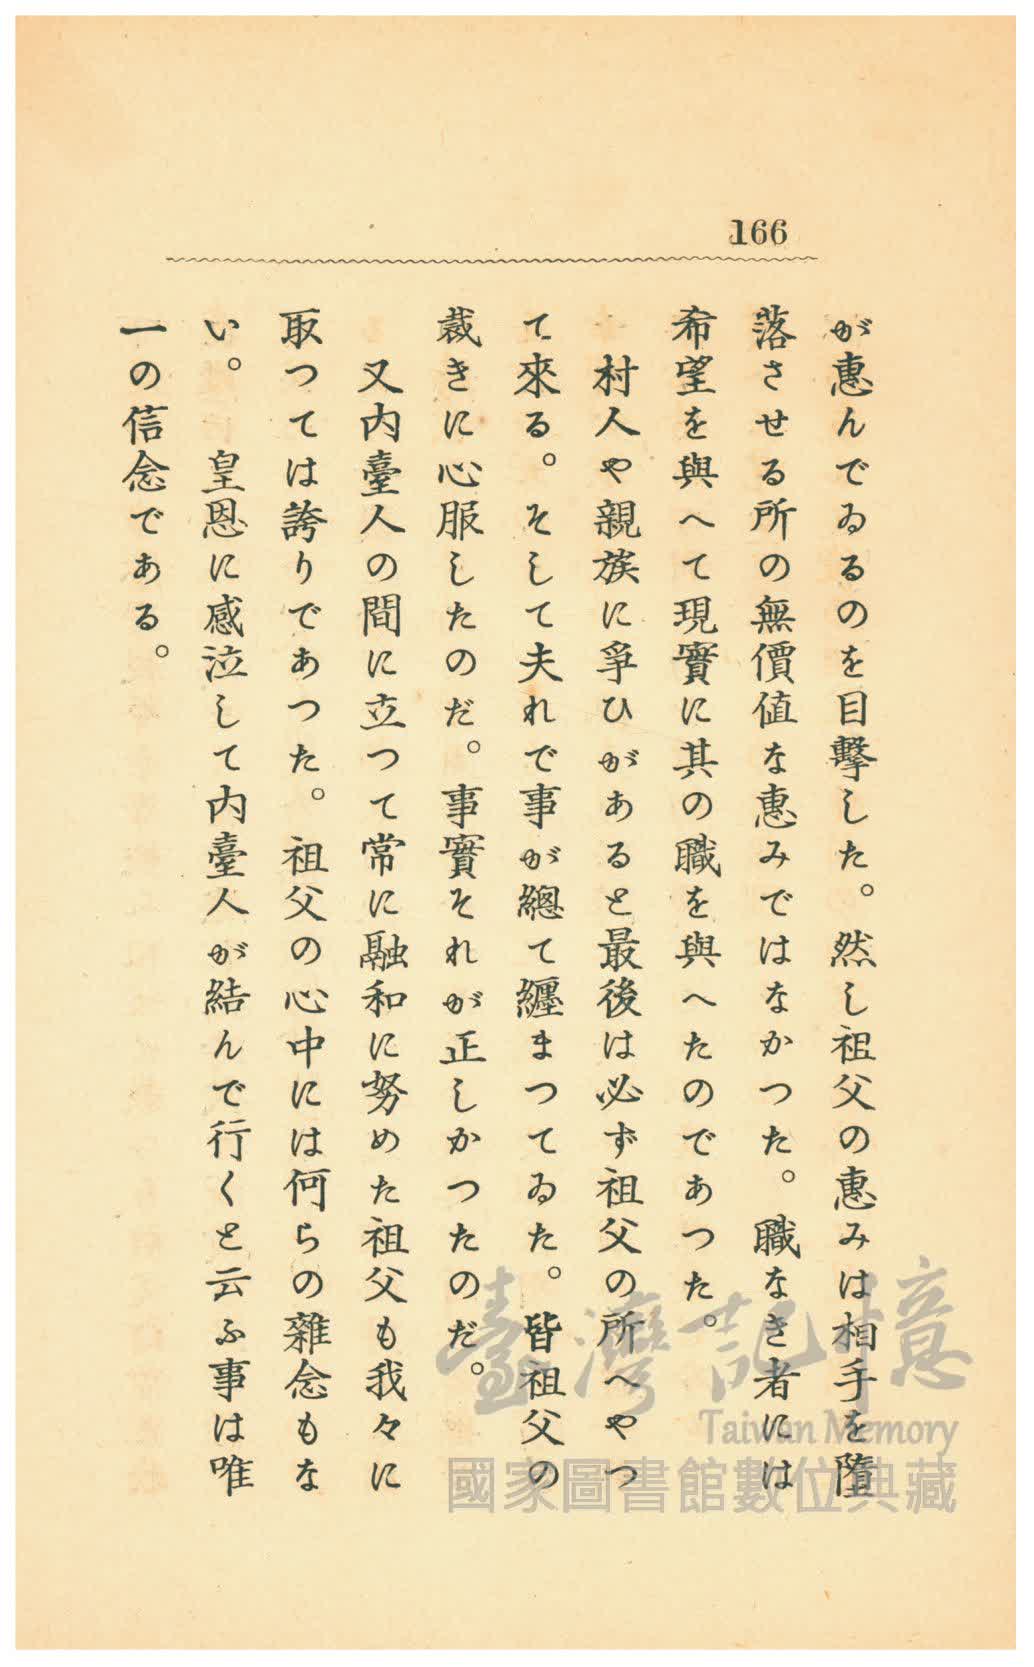 166
が惠んでゐるのを目擊した。然し祖父の惠みは相手を隋
落させる所の無價値な惠みではなかつた。職なき者には
希望を與へて現實に其の職を與へたのであつた。
村人や親族に爭ひがあると最後は必ず祖父の所へやつ
て來る。そして夫れで事が總て纒まつてゐた。皆祖父の
裁きに心服したのだ。事實それが正しかつたのだ。
又內臺人の間に立つて常に融和に努めた祖父も我々に
取つては誇りであつた。祖父の心中には何らの雜念もな
い。皇恩に感泣して內臺人が結んで行くと云ふ事は唯
一の信念である。
臺灣記憶
Taiwan Memory
國家圖書館數位典藏